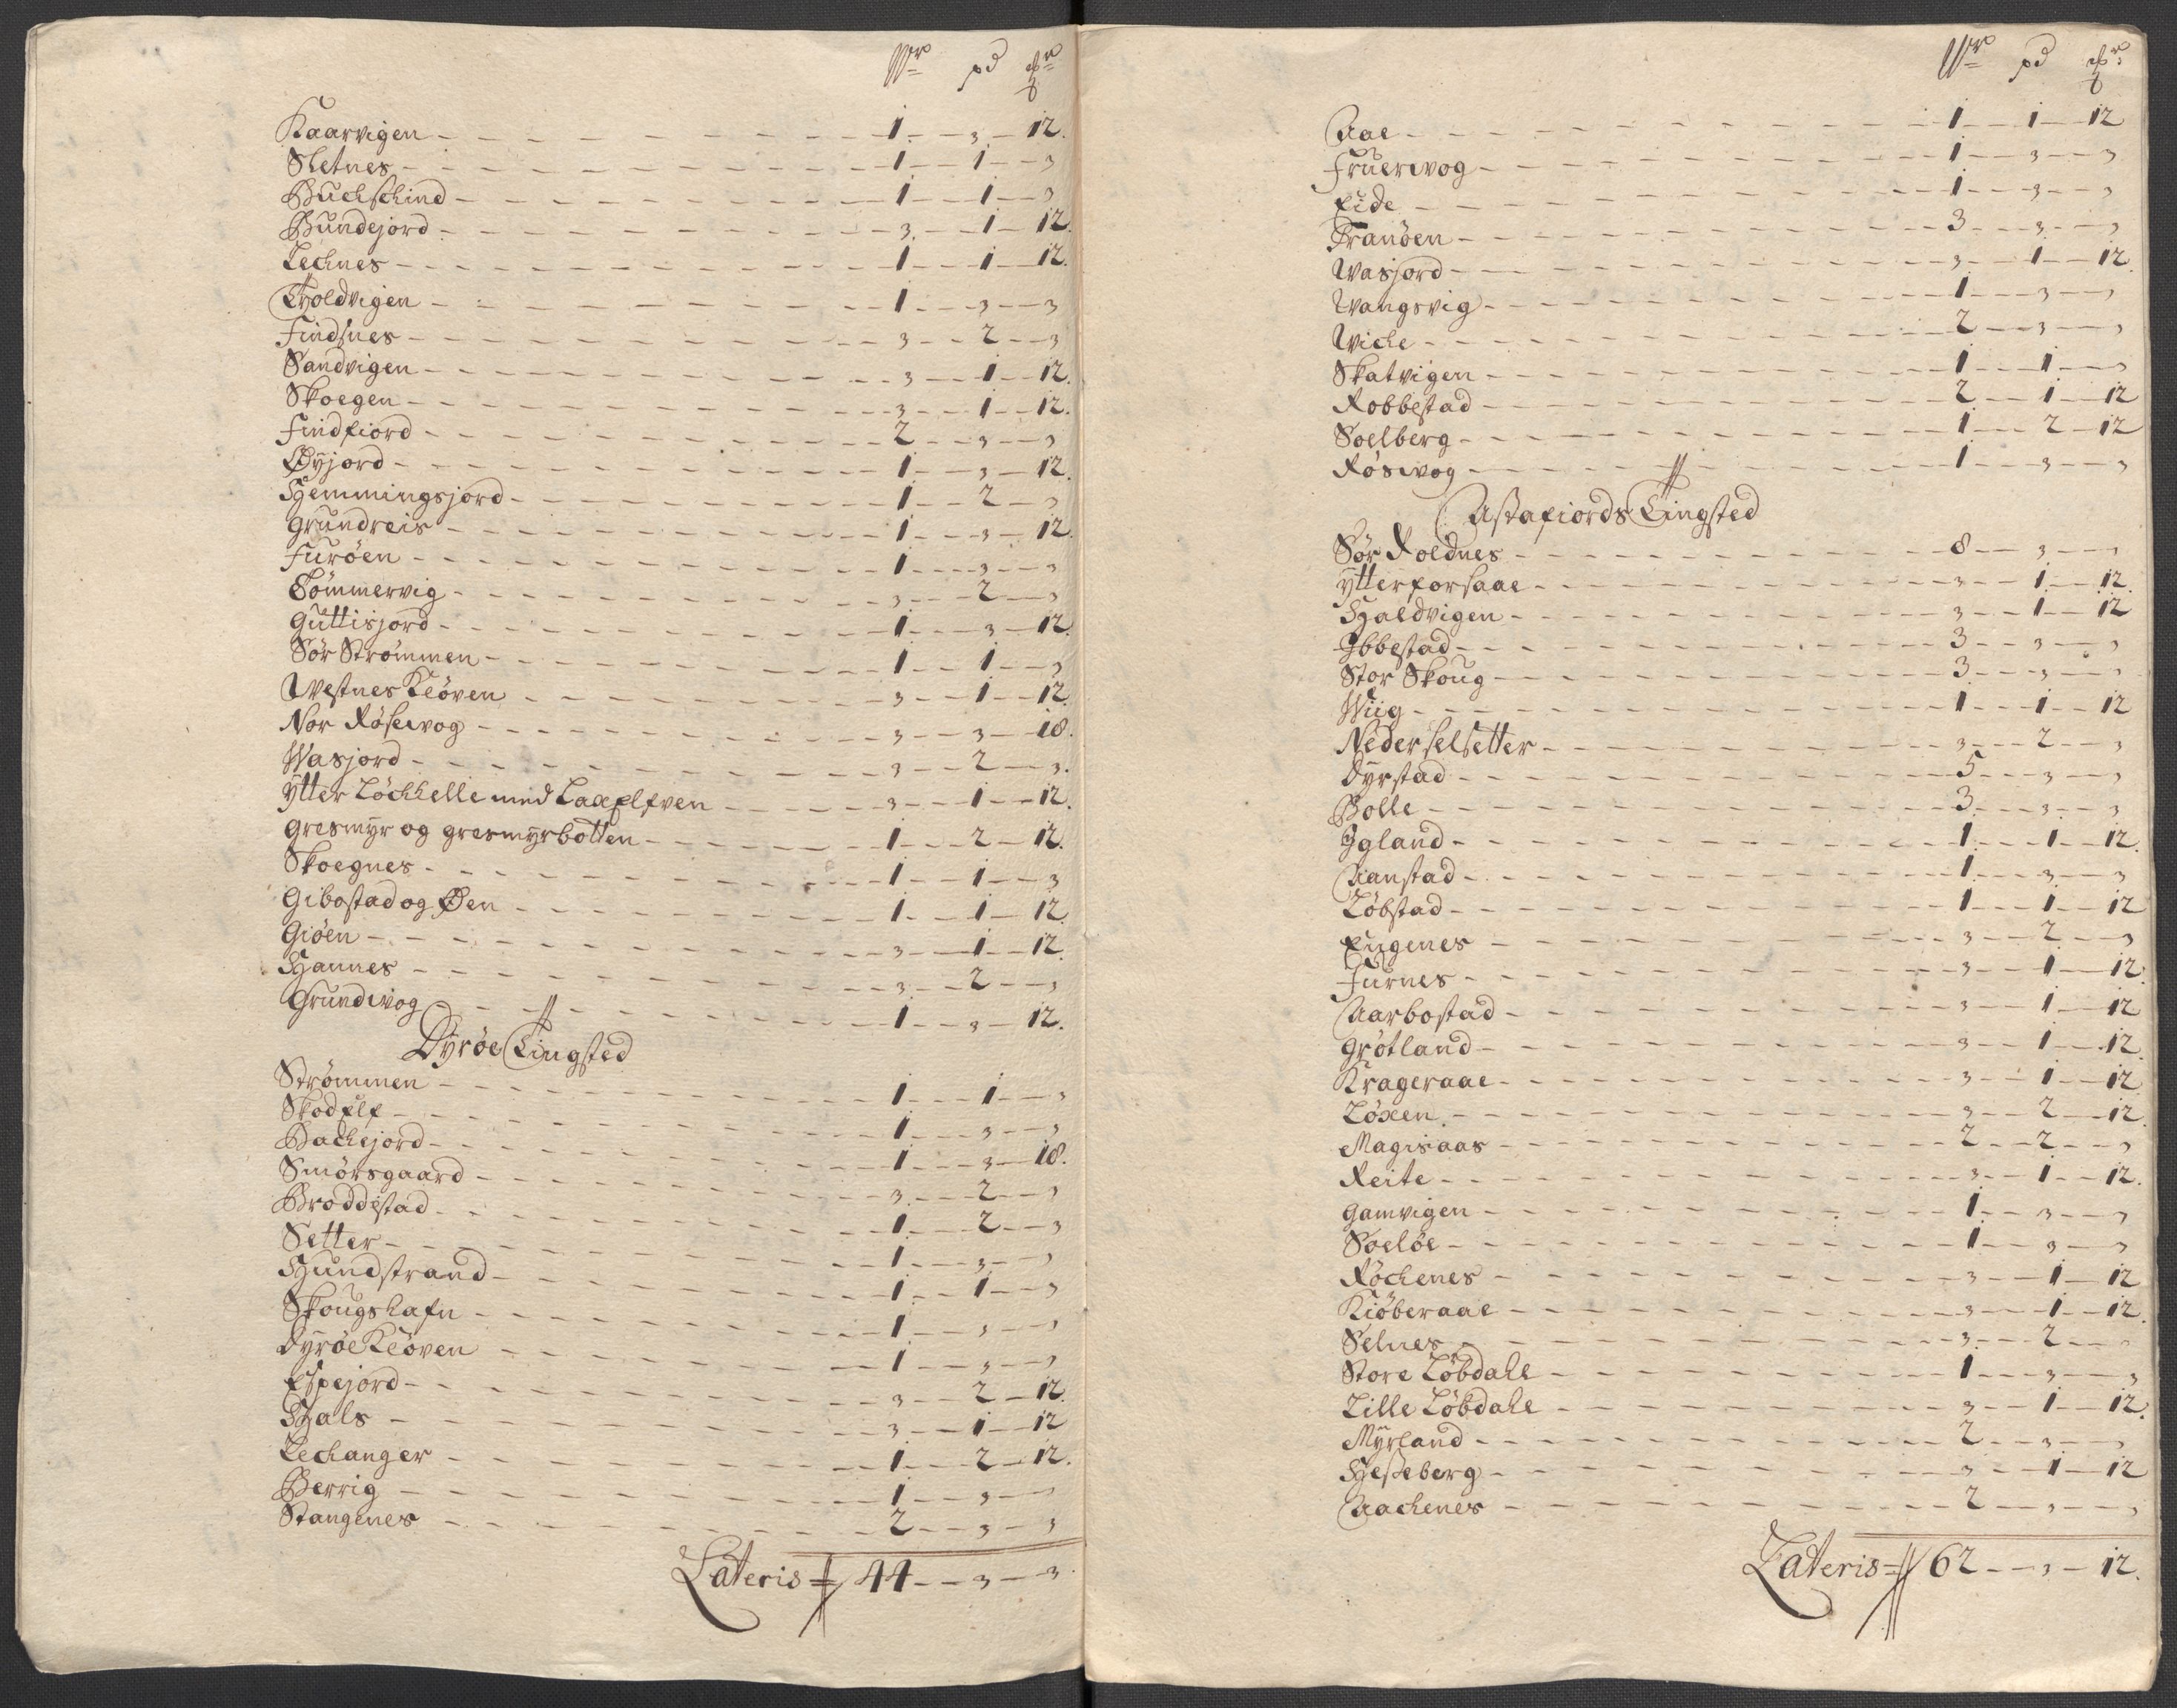 Wr pd ℔r
Kaarvigen - 1 - 3 - 12.
Sletnes - 1 - 1 - 3
Buchschind - 1 - 1 - 3
Bundejord - 3 - 1 - 12.
Lechnes - 1 - 1 - 12.
Troldvigen - 1 - 3 - 3
Findsnes - 3 - 2 - 3
Sandvigen - 3 - 1 - 12.
Skoegen - 3 - 1 - 12.
Findfiord - 2 - 3 - 3
Øyjord - 1 - 3 - 12.
Hemmingsjord - 1 - 2 - 3
Grundreis - 1 - 3 - 12.
Furøen - 1 - 3 - 3
Tømmervig - 3 - 2 - 3
Guttisjord - 1 - 3 - 12.
Sør Strømmen - 1 - 1 - 3
Westnes Kløven - 3 - 1 - 12.
Nor Røsewog - 3 - 3 - 18.
Wasjord - 3 - 2 - 3.
ytter Løchhelle med Laxelfven - 3 - 1 - 12.
Gresmyr og gresmyrbotten - 1 - 2 - 12.
Skoegnes - 1 - 1 - 3
Gibostad og Øen - 1 - 1 - 12.
Giøen - 3 - 1 - 12.
Hannes - 3 - 2 - 3
Grundwog - 1 - 3 - 12.
Dyrøe Tingsted
Strømmen - 1 - 1 - 3
Skodelf - 1 - 3 - 3
Bachejord - 1 - 3 - 18.
Smørsgaard - 3 - 2 - 3
Broddestad - 1 - 2 - 3
Setter - 1 - 3 - 3
Hundstrand - 1 - 1 - 3
Skougshafn - 1 - 3 - 3
Dyrøe Kløven - 1 - 3 - 3
Espejord - 3 - 2 - 12.
Hals - 3 - 1 - 12
Lechanger - 1 - 2 - 12.
Berrig - 1 - 3 - 3
Stangenes - 2 - 3 - 3
Lateris 44 - 3 - 3
Wr pd ℔r
Aae - 1 - 1 - 12
Fruerwog - 1 - 3 - 3
Eide - 1 - 3 - 3
Tranøen - 3 - 3 - 3
Wasjord - 3 - 1 - 12.
Wangsvig - 1 - 3 - 3
Wiche - 2 - 3 - 3
Skatvigen - 1 - 1 - 3
Robbestad - 2 - 1 - 12
Soelberg - 1 - 2 - 12
Røswog - 1 - 3 - 3
Astafiords Tingsted
Sør Roldnes - 8 - 3 - 3
ytterforsaae - 3 - 1 - 12.
Haldvigen - 3 - 1 - 12
Ibbestad - 3 - 3 - 3
Stor Skoug - 3 - 3 - 3
Wiig - 1 - 1 - 12
Nederselsetter - 3 - 2 - 3
Dyrstad - 5 - 3 - 3
Bolle - 3 - 3 - 3
Igland - 1 - 1 - 12.
Aanstad - 1 - 3 - 3
Løbstad - 1 - 1 - 12
Engenes - 3 - 2 - 3
Furnes - 3 - 1 - 12.
Aarbostad - 3 - 1 - 12
Grøtland - 3 - 1 - 12.
Krageraae - 3 - 1 - 12
Løxen - 3 - 2 - 12.
Magisaas - 2 - 2 - 3
Reite - 3 - 1 - 12.
Gamvigen - 1 - 3 - 3
Soeløe - 1 - 3 - 3
Røchenes - 3 - 1 - 12
Kiøberaae - 3 - 1 - 12.
Selnes - 3 - 2 - 3
Store Løbdahl - 1 - 3 - 3
Lille Løbdahl - 3 - 1 - 12.
Myrland - 2 - 3 - 3
Hesseberg - 3 - 1 - 12
Aachenes - 2 - 3 - 3
Lateris 62 - 3 - 12.